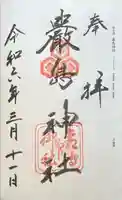 奉拝
嚴島神社
令和六年三月十一日